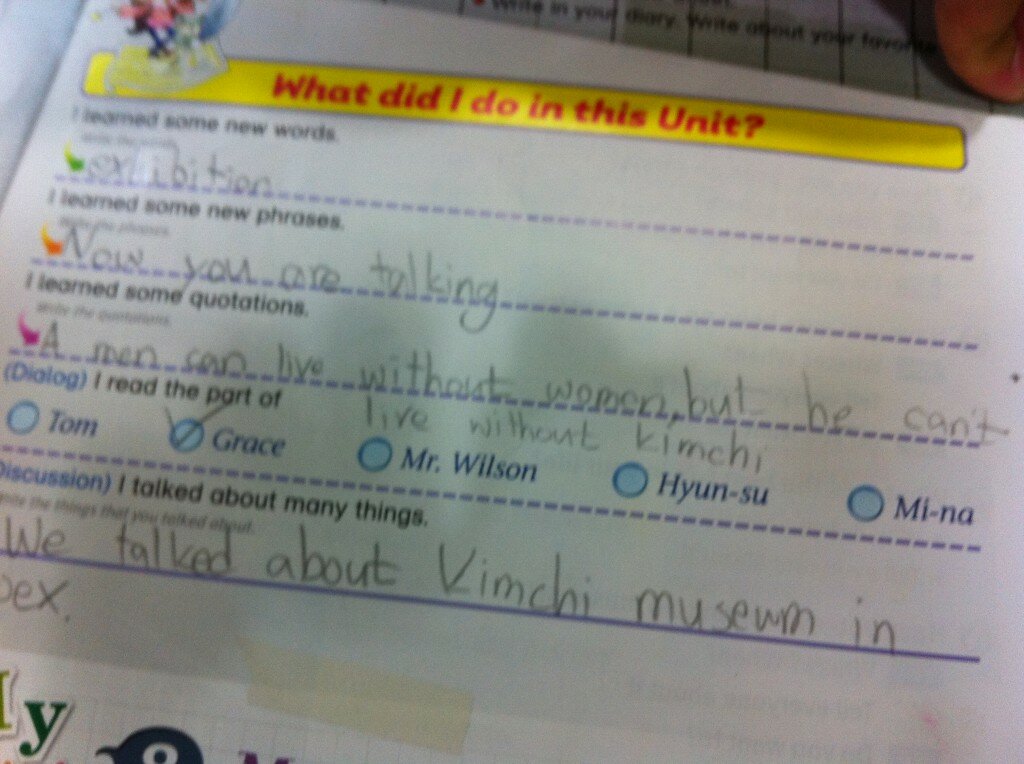 Write in your diary. Write about your favorite
What did I do in this Unit?
I learned some new words.
Write the words.
exhibition
I learned some new phrases.
Write the phrases.
Now you are talking
I learned some quotations.
Write the quotations.
A men can live without women, but he can't
live without kimchi
(Dialog) I read the part of
Tom Grace Mr. Wilson Hyun-su Mi-na
Discussion) I talked about many things.
Write the things that you talked about.
We talked about Kimchi museum in
oex.
My
8